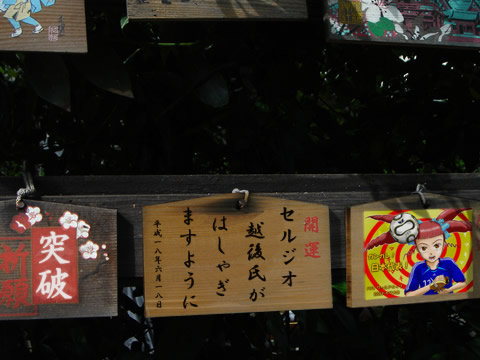 開運
セルジオ
越後氏が
はしゃぎ
ますように
平成一八年六月一八日
突破
祈願